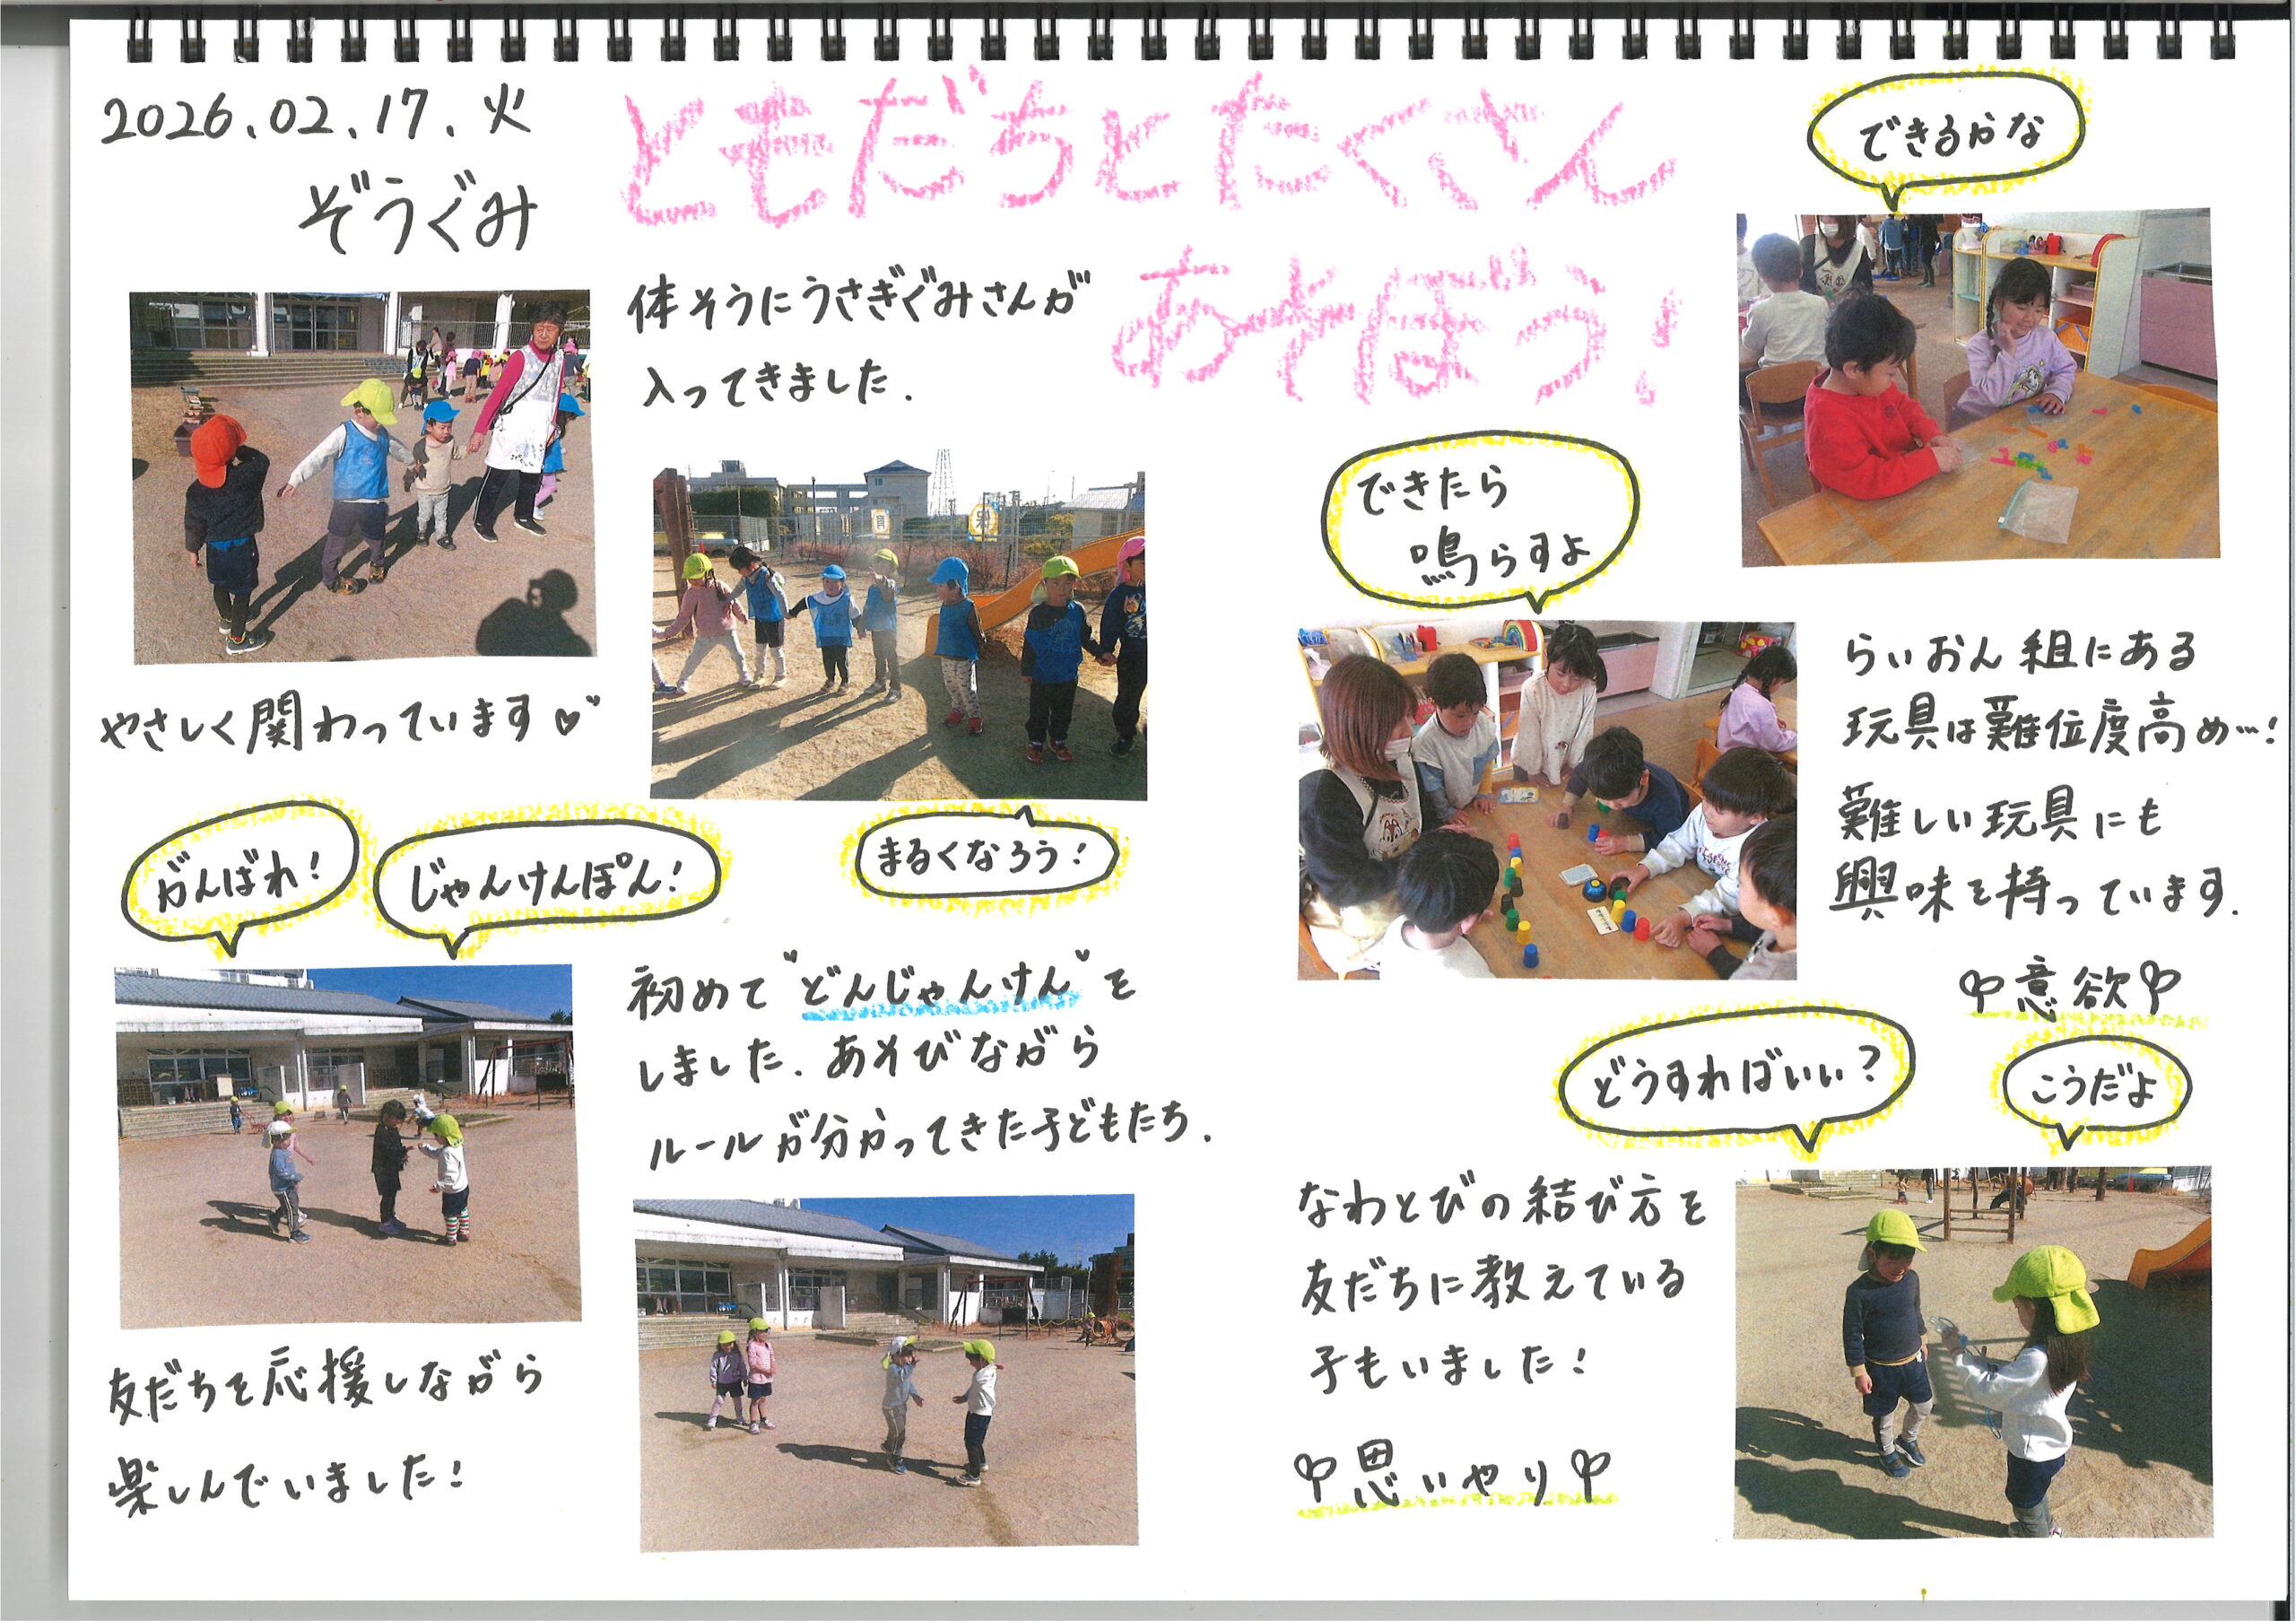 2026.02.17.火
ぞうぐみ
ともだちとたくさん
あそぼう!
体そうにうさぎぐみさんが
入ってきました.
やさしく関わっています♡
まるくなろう!
がんばれ!
じゃんけんぽん!
初めて"どんじゃんけん"を
しました.あそびながら
ルールが分かってきた子どもたち.
友だちを応援しながら
楽しんでいました!
できるかな
できたら
鳴らすよ
らいおん組にある
玩具は難位度高め…!
難しい玩具にも
興味を持っています.
意欲
どうすればいい?
こうだよ
なわとびの結び方を
友だちに教えている
子もいました!
思いやり